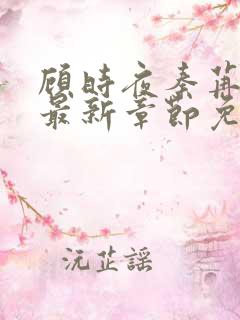 顾時夜秦苒
最新章節免
沅芷謠